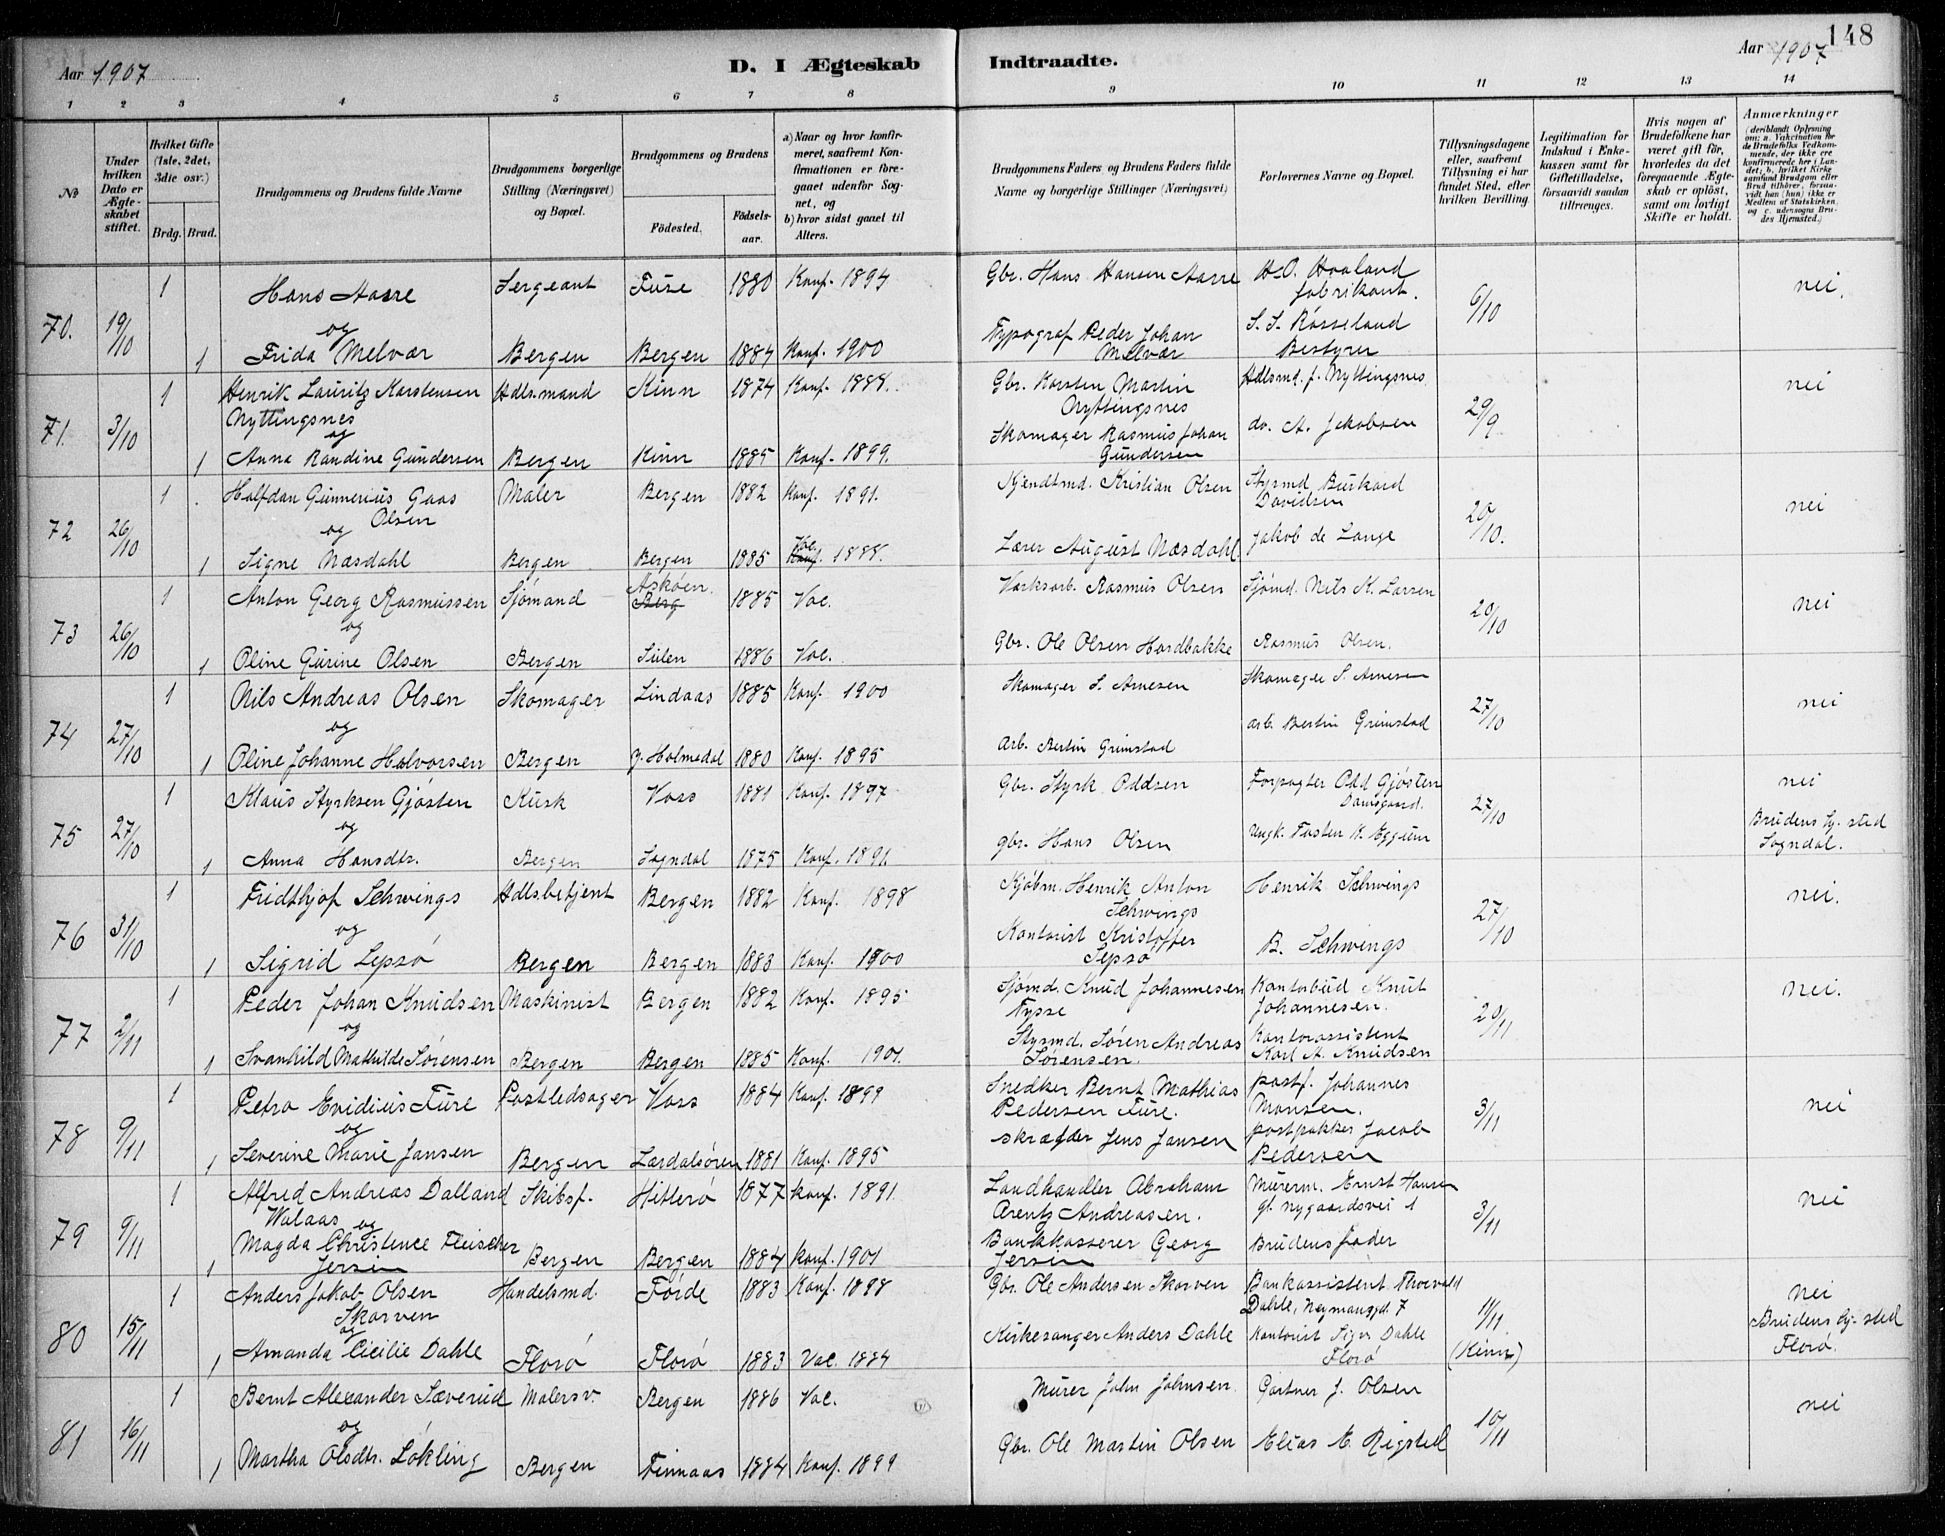 148
Aar 1907
D. I Ægteskab Indtraadte.
Aar 1907
1 2 3 4 5 6 7 8 9 10 11 12 13 14
No
Under hvilken Dato er Ægteskabet stiftet.
Hvilket Gifte (1ste, 2det, 3die osv.)
Brdg. Brud.
Brudgommens og Brudens fulde Navne
Brudgommens borgerlige Stilling (Næringsvei) og Bopæl.
Brudgommens og Brudens
Födested. Födsels-aar.
a) Naar og hvor konfirmeret, saafremt Konfirmationen er foregaaet udenfor Sognet, og
b) hvor sidst gaaet til Alters.
Brudgommens Faders og Brudens Faders fulde Navne og borgerlige Stillinger (Næringsvei)
Forlovernes Navne og Bopæl.
Tillysningsdagene eller, saafremt Tillysning ei har fundet Sted, efter hvilken Bevilling.
Legitimation for Indskud i Enkekassen samt for Giftetilladelse, forsaavidt saadan tiltrænges.
Hvis nogen af Brudefolkene har været gift för, hvorledes da det foregaaende Ægteskab er oplöst, samt om lovligt Skifte er holdt.
Anmærkninger
(deriblandt Oplysning om: a. Vakcination for de Brudefolks Vedkommende, der ikke ere konfirmerede her i Landet; b. hvilket Kirkesamfund Brudgom eller Brud tilhörer, forsaavidt han (hun) ikke er Medlem af Statskirken, og c. udensogns Brudes Hjemsted.)
70. 19/10 1 Hans Aasre Sergeant Fuse 1880 Konf. 1894 Gbr. Hans Hansen Aasre H.O. Haaland fabrikant. 6/10 nei.
og
1 Frida Melvær Bergen Bergen 1884 Konf. 1900 Typograf Peder Johan Melvær S. S. Røsseland Bestyrer
71. 3/10 1 Henrik Lauritz Karstensen Nyttingsnes Hdlsmand Kinn 1874 Konf. 1888. Gbr. Karsten Martin Nyttingsnes Hdlsmd. J. Nyttingsnes 29/9 nei
og
1 Anna Randine Gundersen Bergen Kinn 1885 Konf. 1899. Skomager Rasmus Johan Gundersen do. A. Jakobsen
72 26/10 1 Halfdan Gunnerius Gaas Olsen Maler Bergen 1882 Konf. 1891. Kjendtmd. Kristian Olsen Styrmd Burkard Davidsen 20/10. nei
og
1 Signe Næsdahl Bergen Bergen 1885 Vac. Konf. 1888. Lærer August Næsdahl Jakob de Lange
73 26/10 1 Anton Georg Rasmussen Sjømand Askøen. Berg 1885 Vac. Værksarb. Rasmus Olsen Sjømd. Nils K. Larsen 20/10 nei
og
1 Oline Gurine Olsen Bergen Sulen 1886 Vac. Gbr. Ole Olsen Hardbakke Rasmus Olsen.
74 27/10 1 Nils Andreas Olsen Skomager Lindaas 1885 Konf. 1900 Skomager S. Arnesen Skomager S. Arnesen 27/10 nei
og
1 Oline Johanne Halvorsen Bergen Y. Holmedal 1880 Konf. 1895 Arb. Bertin Grimstad arb. Bertin Grimstad
75 27/10 1 Klaus Styrksen Gjøsten Kusk Voss 1881 Konf. 1897 Gbr. Styrk Oddsen Forpagter Odd Gjøsten Damsgaard. 27/10 nei
og
1 Anna Hansdtr. Bergen Sogndal 1875 Konf. 1891 gbr. Hans Olsen Ungk. Tosten K. Eggum Brudens hj. sted Sogndal.
76 31/10 1 Fridthjof Schwings Hdlsbetjent Bergen 1882 Konf. 1898 Kjøbm. Henrik Anton Schwings Henrik Schwings 27/10 nei.
og
1 Sigrid Lepsø Bergen Bergen 1883 Konf. 1900 Kontorist Kristoffer Lepsø B. Schwings
77 2/11 1 Peder Johan Knudsen Maskinist Bergen 1882 Konf. 1895 Sjømd. Knud Johannesen Tysse Kontorbud Knut Johannesen. 20/11 nei.
og
1 Svanhild Mathilde Sørensen Bergen Bergen 1885 Konf. 1901. Styrmd. Søren Andreas Sørensen. Kontorassistent Karl A. Knudsen
78 9/11 1 Petro Evidius Fure Postledsager Voss 1884 Konf. 1899 Snedker Bernt Mathias Pedersen Fure. postf. Johannes Monsen. 3/11 nei
og
1 Severine Marie Jansen Bergen Lærdalsøren 1881 Konf. 1895 skrædder Jens Jansen postpakker Jacob Pedersen
79 9/11 1 Alfred Andreas Dalland Walaas Skibsf. Hitterø 1877 konf. 1891. Landhandler Abraham Arentz Andreasen. Murerm. Ernst Hansen gl. nygaardsvei 1 3/11 nei
og
1 Magda Christence Fleischer Jersin Bergen Bergen 1884 konf. 1901 Bankkasserer Georg Jersin Brudens fader
80 15/11 1 Anders Jakob Olsen Skorven Handelsmd. Førde 1883 Konf. 1898 Gbr. Ole Andersen Skorven Bankassistent Thorvald Dahle, Neymansgd. 7 10/11 (Kinn) nei
og
1 Amanda Cicilie Dahle Florø Florø 1883 Vac. 1884 Kirkesanger Anders Dahle Kontorist Sigv. Dahle Florø Brudens hj. sted Florø.
81 16/11 1 Bernt Alexander Sæverud Malersv. Bergen 1886 Vac. Murer John Johnsen. Gartner J. Olsen 10/11 nei
og
1 Martha Olsdtr. Løkling Bergen Finnaas 1884 Konf. 1899 Gbr. Ole Martin Olsen Elias E. Rigsted